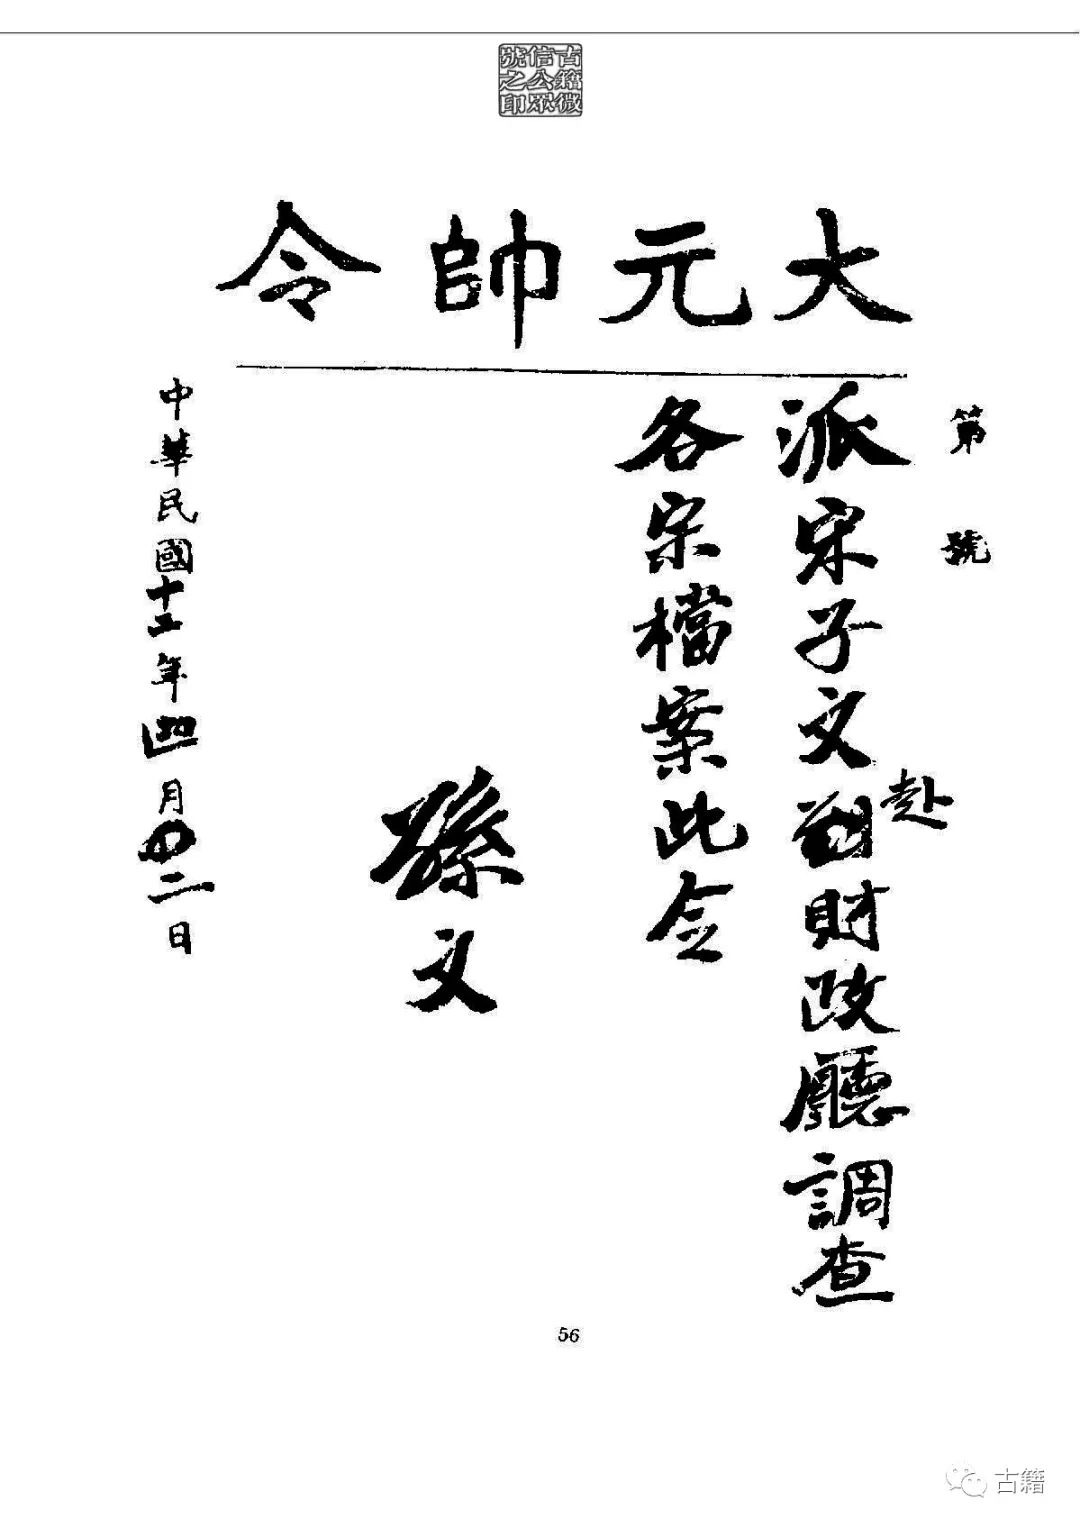 古籍微
信公眾
號之印
大元帥令
第 號
派宋子文赴財政廳調查
各宗檔案此令
孫文
中華民國十三年四月二日
56
古籍